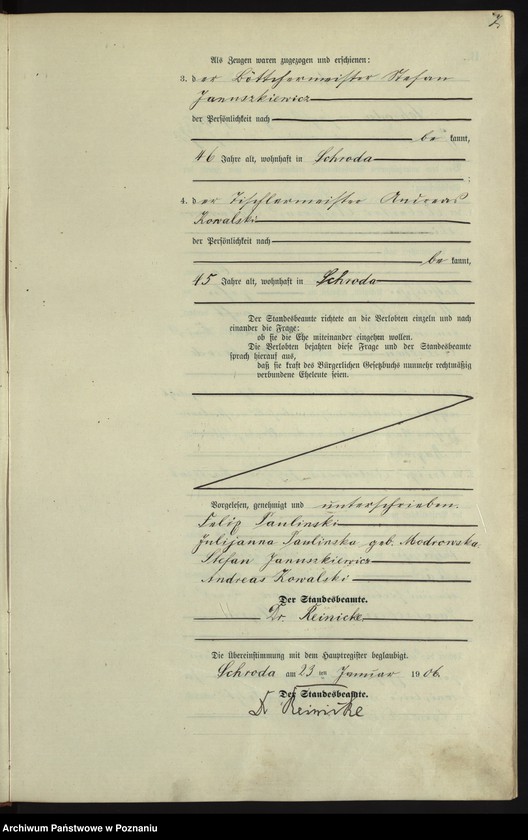 2.
Als Zeugen waren zugezogen und erschienen:
3. der Böttchermeister Stefan
Januszkiewicz
der Persönlichkeit nach
be kannt,
46 Jahre alt, wohnhaft in Schroda
;
4. der Tischlermeister Andreas
Kowalski
der Persönlichkeit nach
be kannt,
45 Jahre alt, wohnhaft in Schroda
Der Standesbeamte richtete an die Verlobten einzeln und nach
einander die Frage:
ob sie die Ehe miteinander eingehen wollen.
Die Verlobten bejahten diese Frage und der Standesbeamte
sprach hierauf aus,
daß sie kraft des Bürgerlichen Gesetzbuchs nunmehr rechtmäßig
verbundene Eheleute seien.
Vorgelesen, genehmigt und unterschrieben.
Felix Paulinski
Julijanna Paulinska geb. Modrowska
Stefan Januszkiewicz
Andreas Kowalski
Der Standesbeamte.
Dr. Reinicke
Die Übereinstimmung mit dem Hauptregister beglaubigt.
Schroda am 23 ten Januar 1906.
Der Standesbeamte.
Dr Reinicke
Archiwum Państwowe w Poznaniu